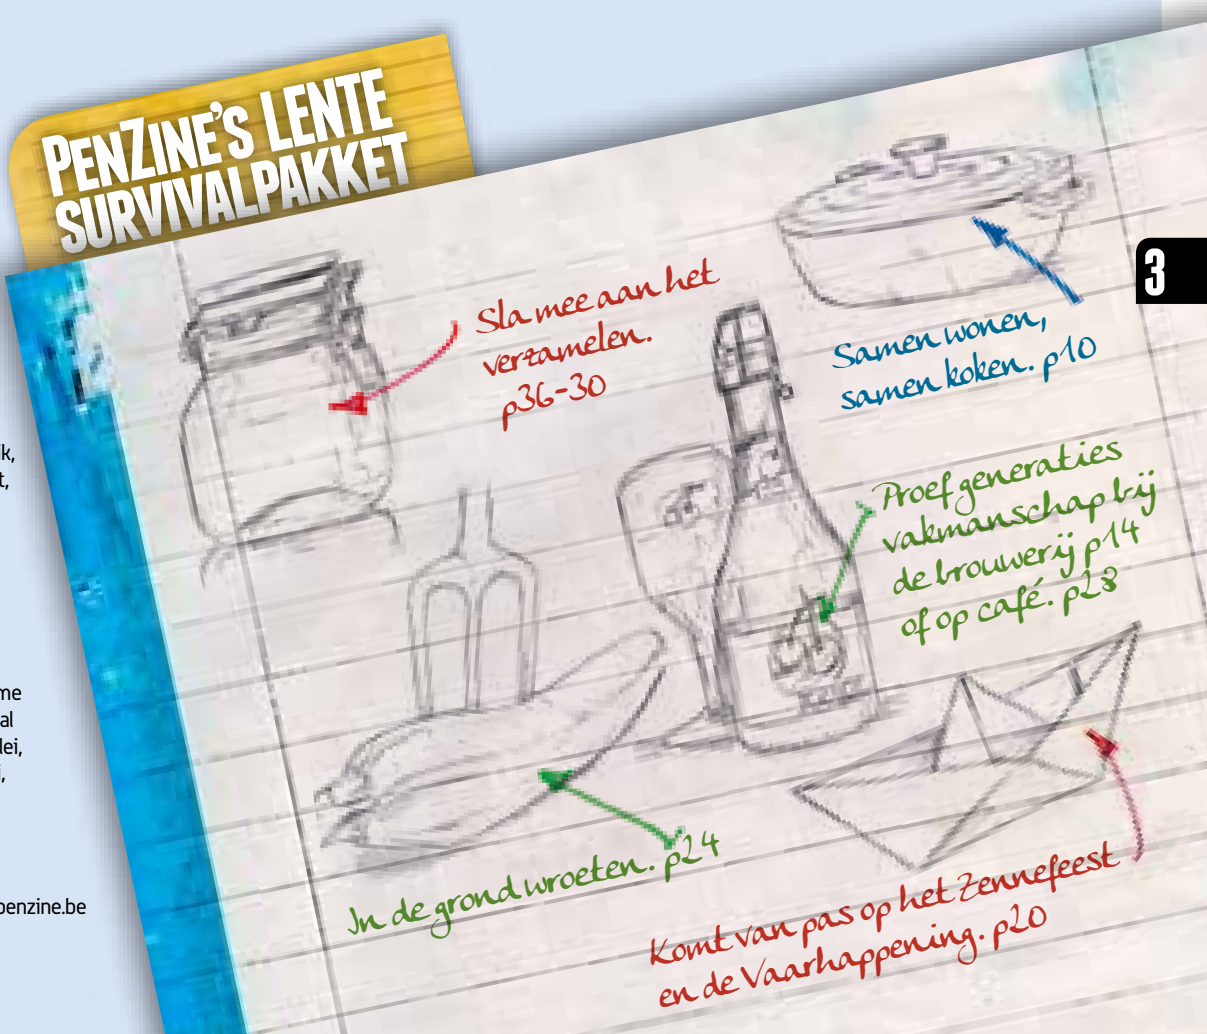 PENZINE'S LENTE
SURVIVALPAKKET
3
Sla mee aan het
verzamelen.
p36-30
Samen wonen,
samen koken. p10
Proef generaties
vakmanschap bij
de brouwerij p14
of op café. p28
In de grond wroeten. p24
Komt van pas op het Zennefeest
en de Vaarhappening. p20
ik,
t,
me
al
lei,
penzine.be